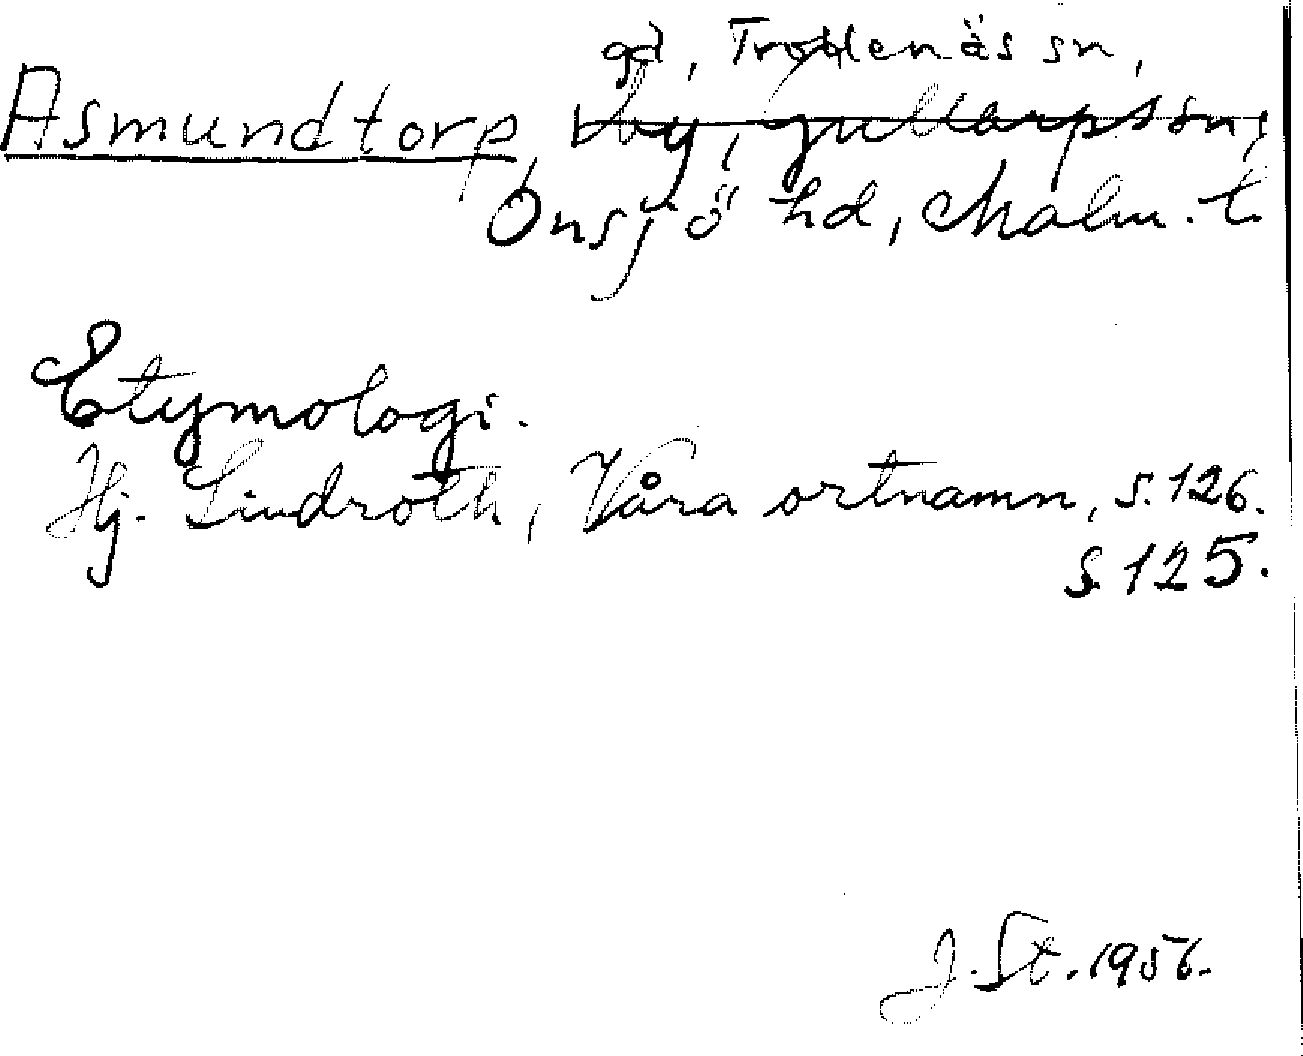 gd, Trollenäs sn,
Asmundtorp, by, Gullarps sn,
Onsjö hd, Malm. l.
Etymologi.
Hj. Lindroth, Våra ortnamn, s. 126.
s. 125.
J. St. 1956.